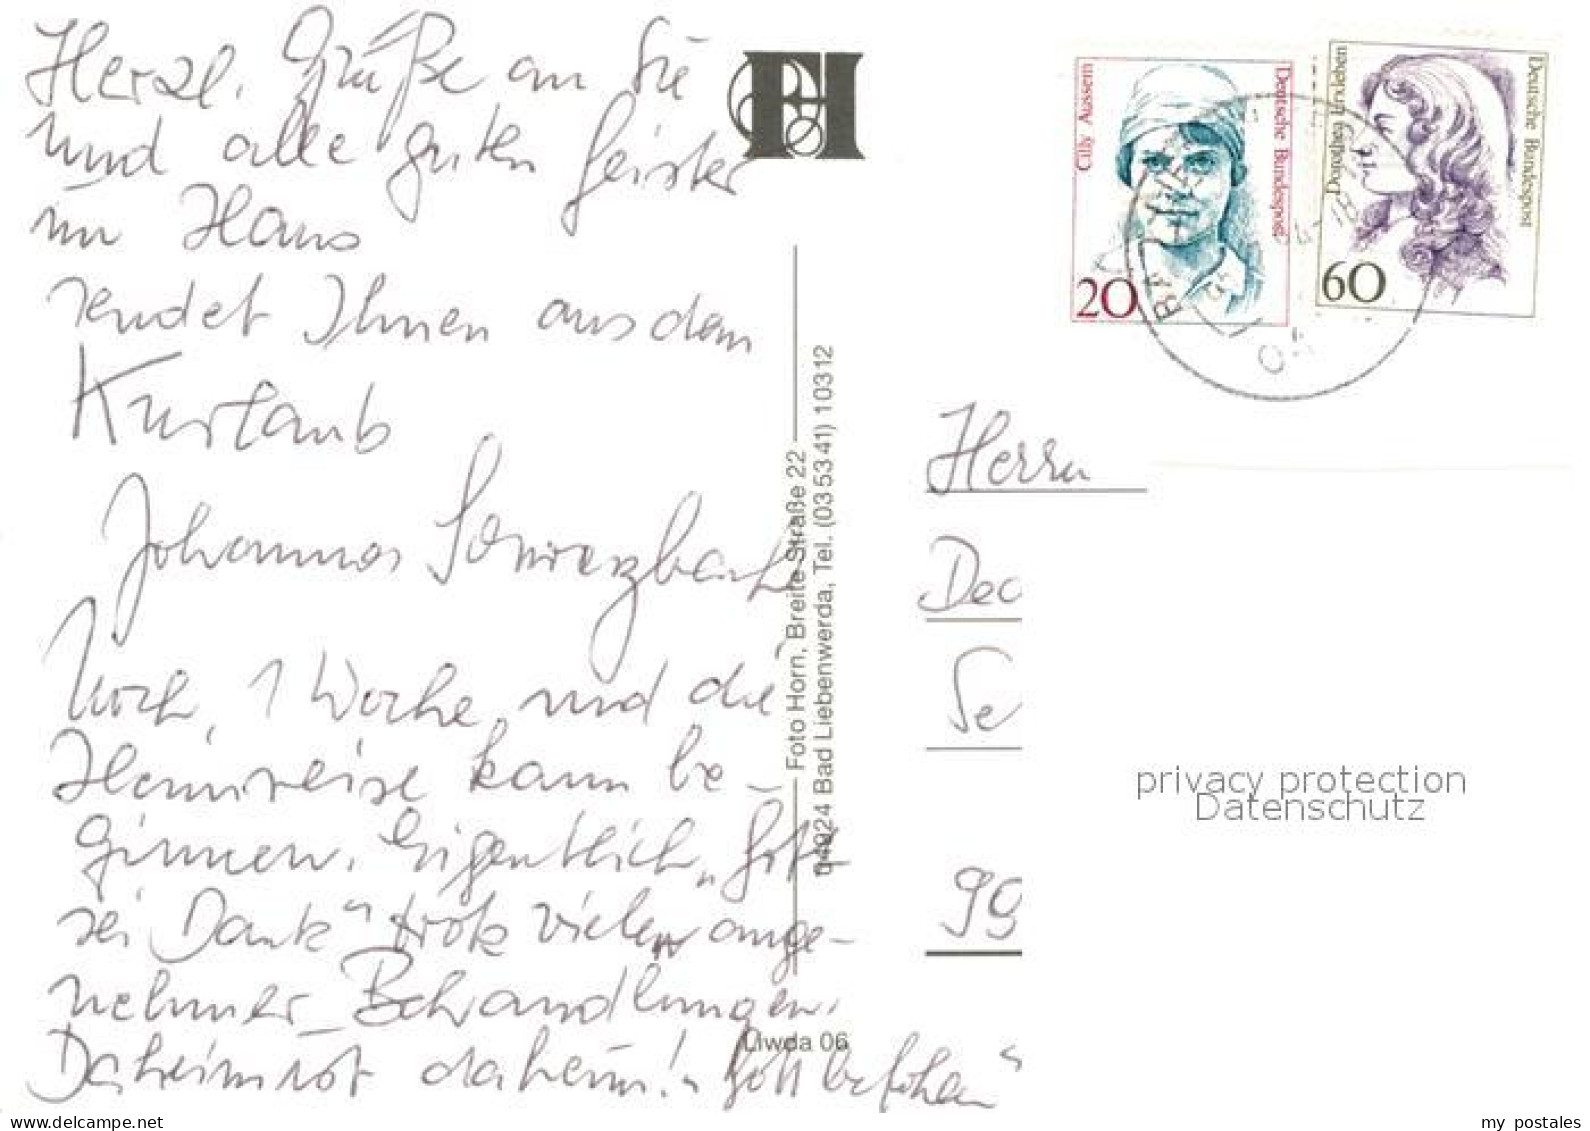 Herzl. Grüße an Sie
und alle guten Geister
im Haus
sendet Ihnen aus dem
Kurlaub
Johannes Schwarzbach
Noch 1 Woche, und die
Heimreise kann be-
ginnen. Eigentlich „Gott
sei Dank“ trotz vielen ange-
nehmer Behandlungen.
Daheim ist daheim! „Gott befohlen“
FH
Foto Horn, Breite Straße 22
04924 Bad Liebenwerda, Tel. (03 53 41) 103 12
Liwda 06
Cilly Aussem
Deutsche Bundespost
20
Dorothea Erxleben
Deutsche Bundespost
60
Herrn
Dec
Se
99
privacy protection
Datenschutz
my postales